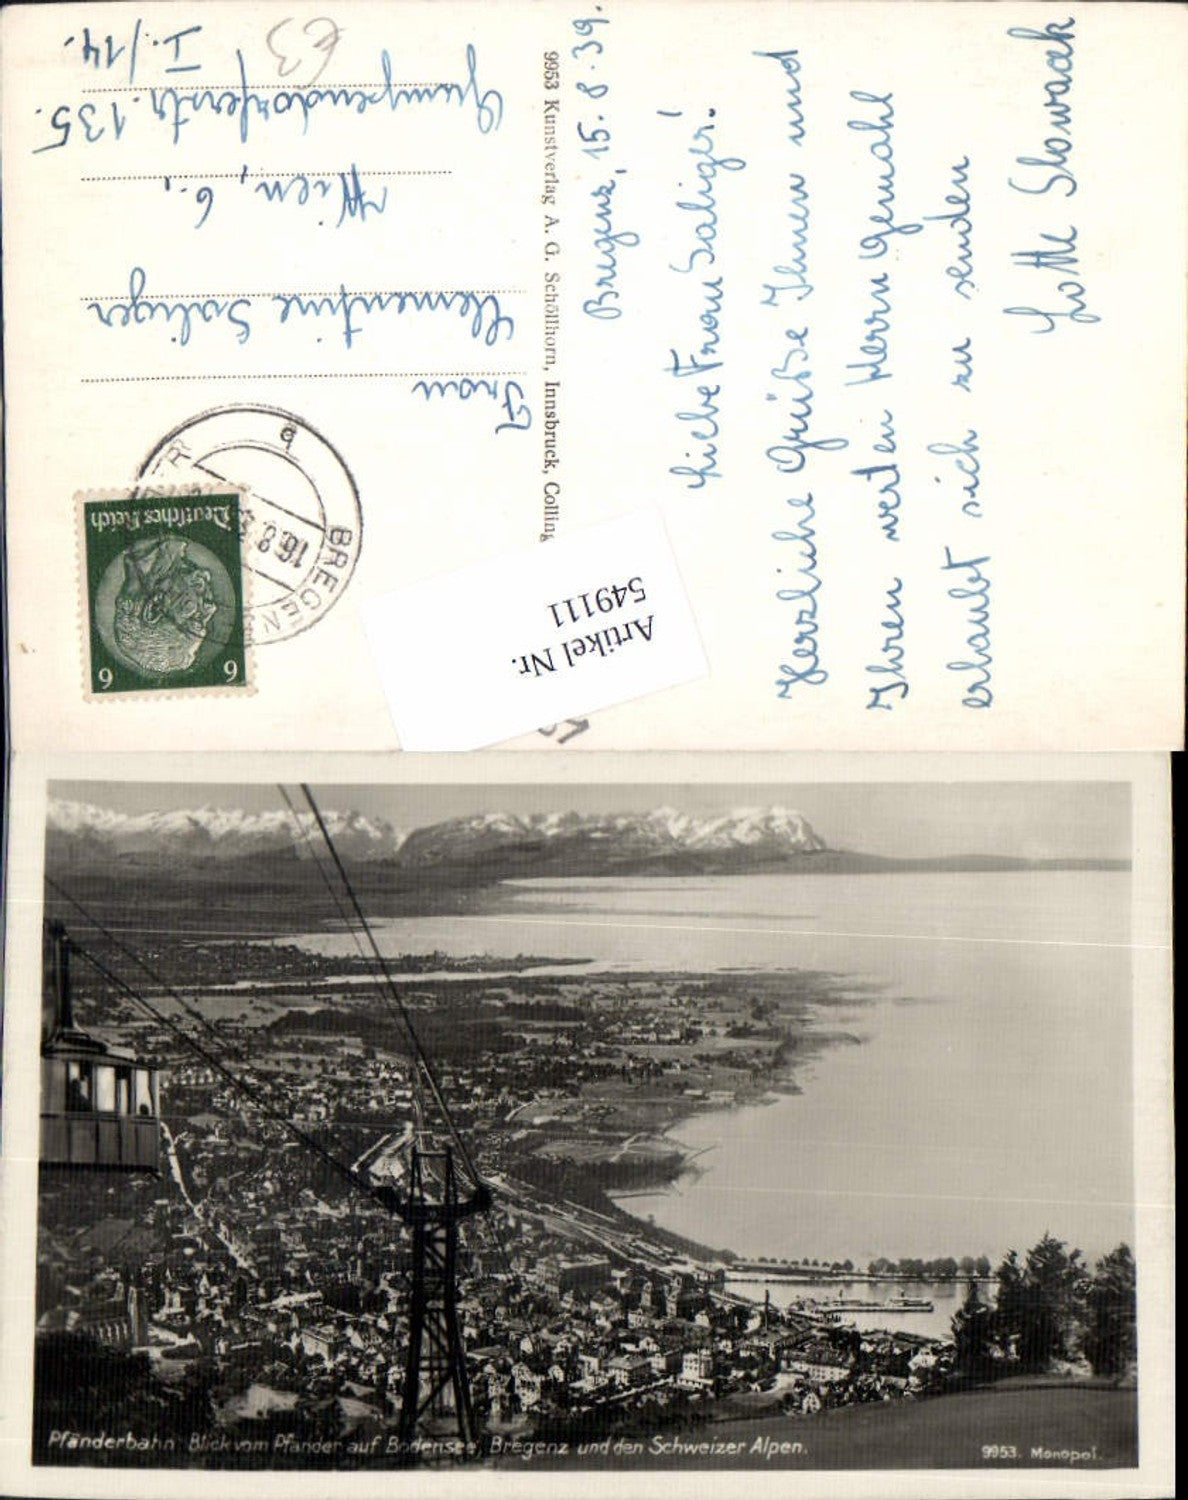 Bregenz, 15.8.39.
Liebe Frau Saliger!
Herzliche Grüße Ihnen und
Ihren werten Herrn Gemahl
erlaubt sich zu senden
Lotte Slowacek
9953 Kunstverlag A. G. Schöllhorn, Innsbruck, Colling
Frau
Clementine Saliger
Wien, 6.,
Gumpendorferstr. 135.
I./14.
€3
Deutsches Reich
6 6
BREGEN
16.8.
a
Artikel Nr.
549111
Pfänderbahn Blick vom Pfänder auf Bodensee, Bregenz und den Schweizer Alpen.
9953. Monopol.